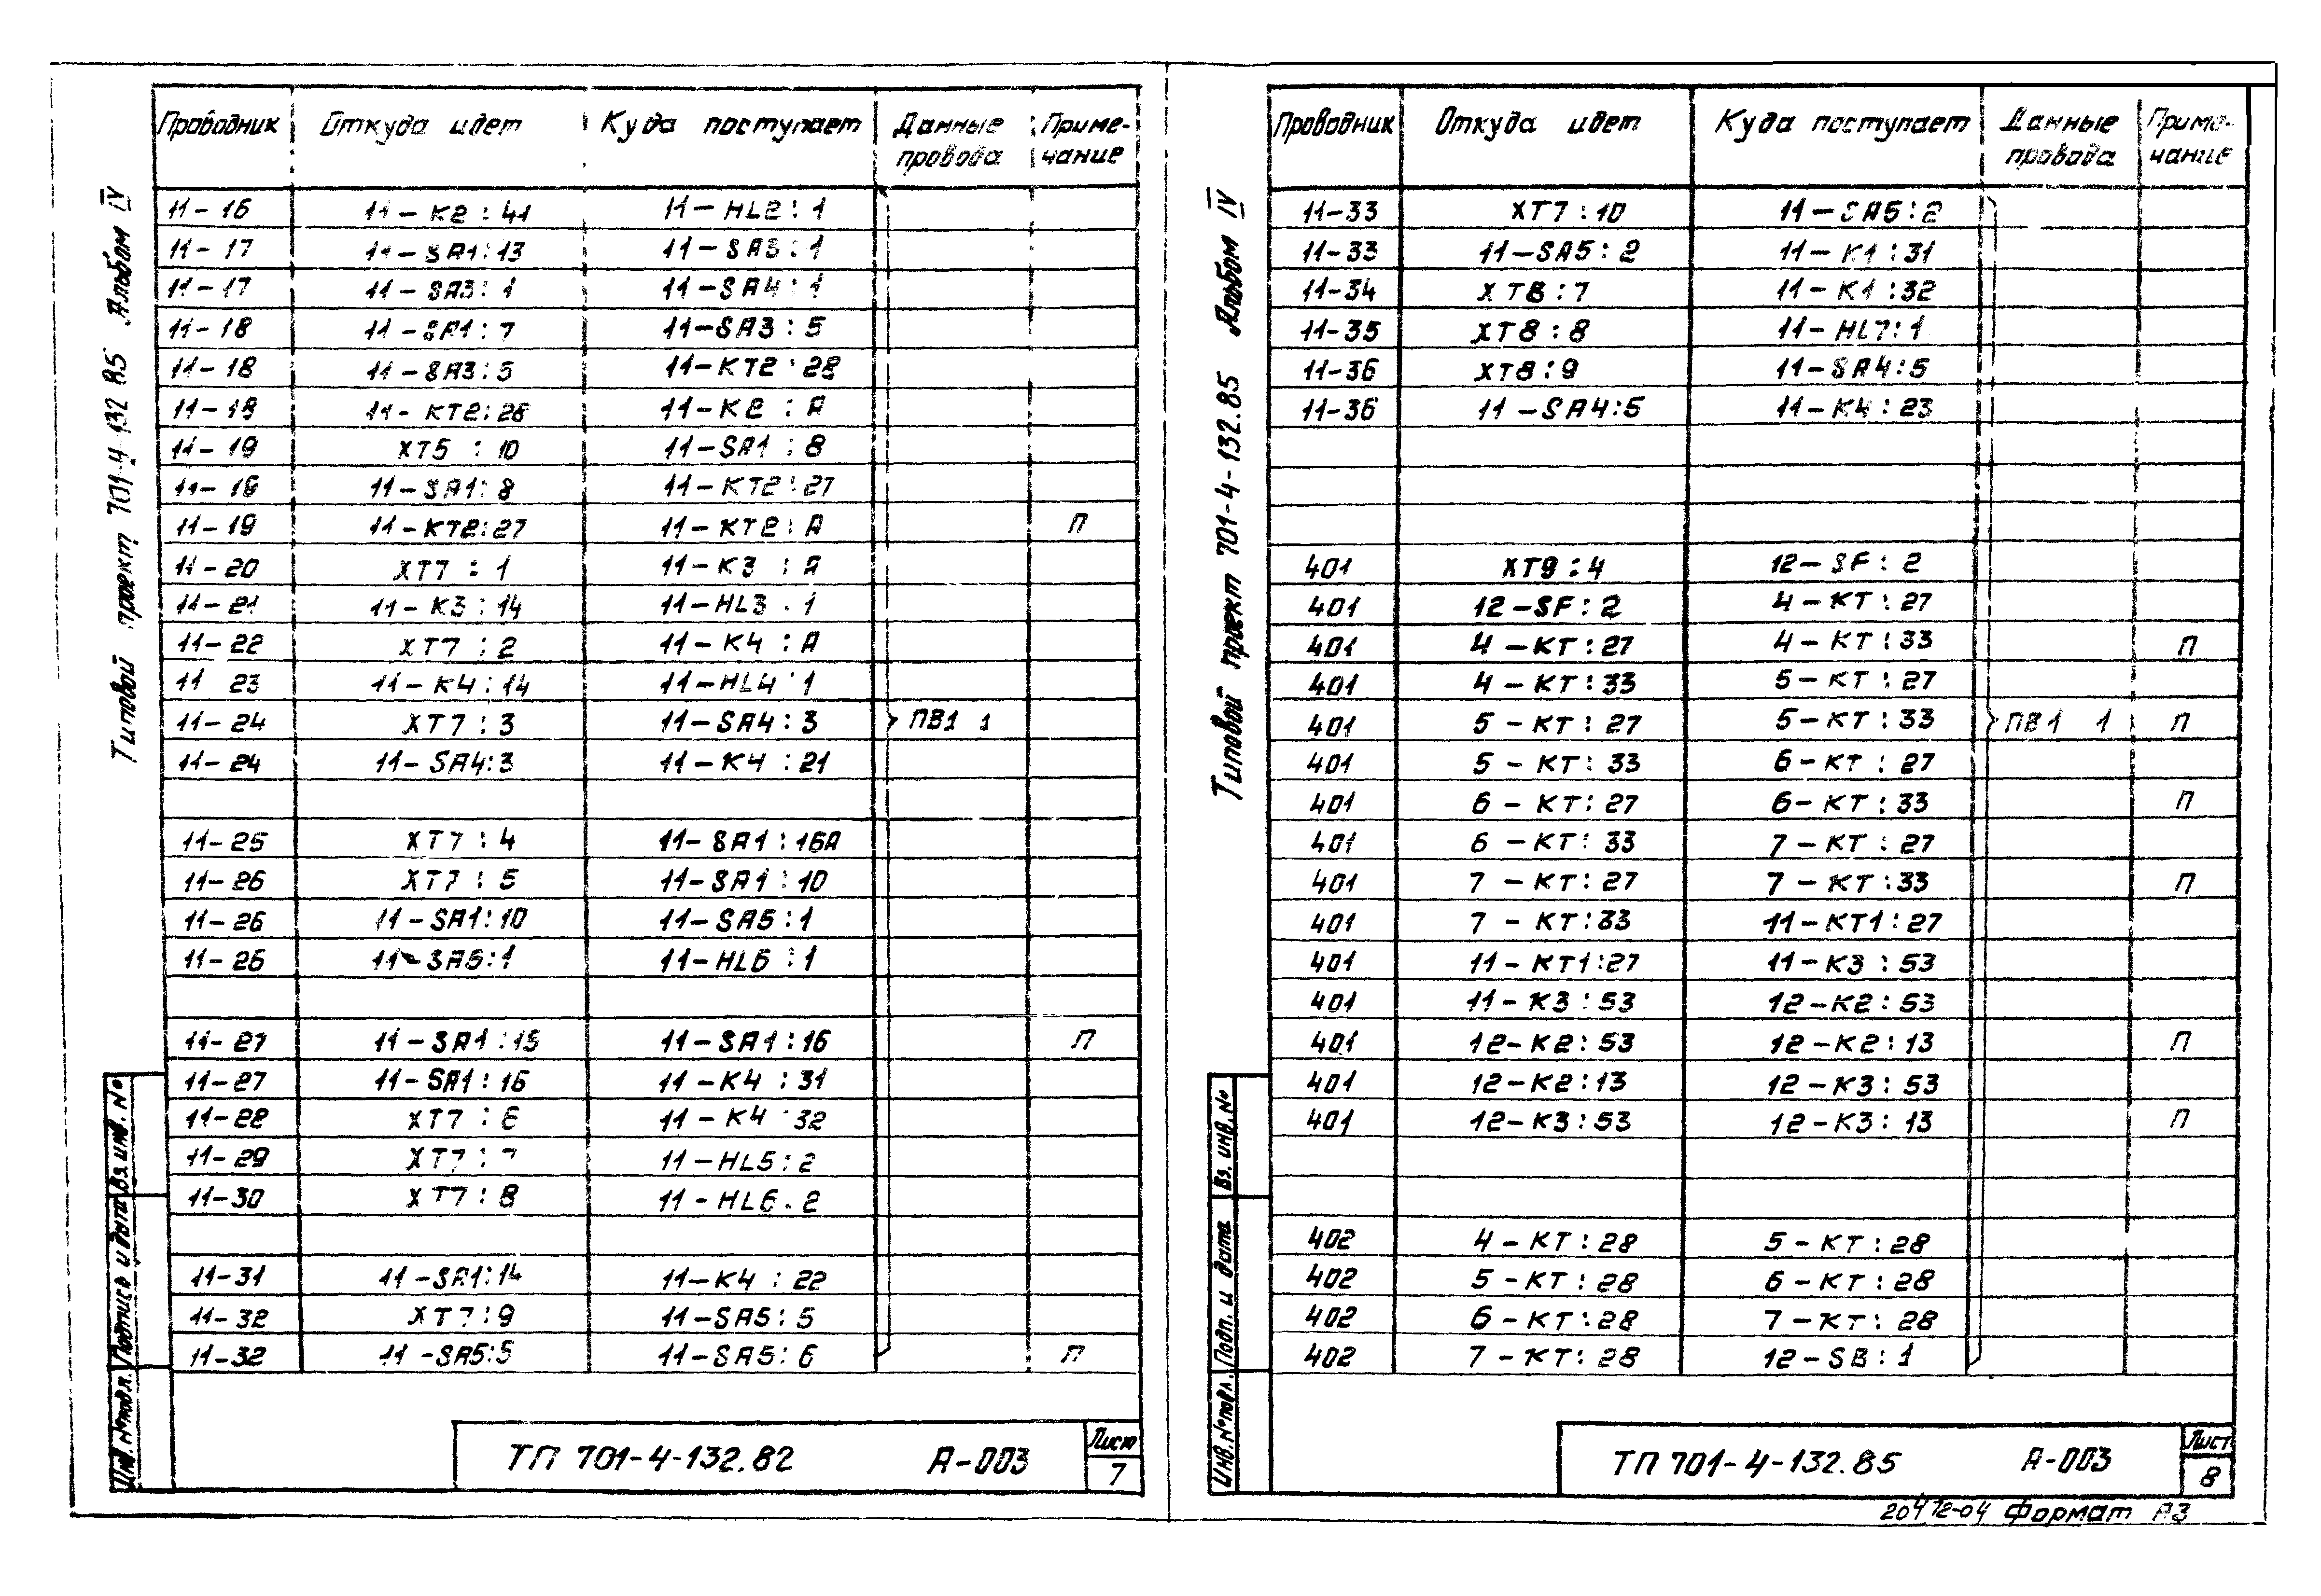 Типовой проект 701-4-132 85 Альбом IV
Проводник Откуда идет Куда поступает Данные провода Приме-чание
11-16 11-К2:41 11-HL2:1
11-17 11-SA1:13 11-SA3:1
11-17 11-SA3:1 11-SA4:1
11-18 11-SA1:7 11-SA3:5
11-18 11-SA3:5 11-KT2:28
11-18 11-KT2:28 11-K2:A
11-19 XT5:10 11-SA1:8
11-19 11-SA1:8 11-KT2:27
11-19 11-KT2:27 11-KT2:A П
11-20 XT7:1 11-K3:A
11-21 11-K3:14 11-HL3.1
11-22 XT7:2 11-K4:A
11 23 11-K4:14 11-HL4:1
11-24 XT7:3 11-SA4:3 ПВ1 1
11-24 11-SA4:3 11-K4:21
11-25 XT7:4 11-SA1:16A
11-26 XT7:5 11-SA1:10
11-26 11-SA1:10 11-SA5:1
11-26 11-SA5:1 11-HL6:1
11-27 11-SA1:15 11-SA1:16 П
11-27 11-SA1:16 11-K4:31
11-28 XT7:6 11-K4:32
11-29 XT7:7 11-HL5:2
11-30 XT7:8 11-HL6.2
11-31 11-SA1:14 11-K4:22
11-32 XT7:9 11-SA5:5
11-32 11-SA5:5 11-SA5:6 П
Инв.№подл. Подпись и дата Вз.инв.№
ТП 701-4-132.82 А-003 Лист 7
Типовой проект 701-4-132.85 Альбом IV
Проводник Откуда идет Куда поступает Данные провода Приме-чание
11-33 XT7:10 11-SA5:2
11-33 11-SA5:2 11-K1:31
11-34 XT8:7 11-K1:32
11-35 XT8:8 11-HL7:1
11-36 XT8:9 11-SA4:5
11-36 11-SA4:5 11-K4:23
401 XT9:4 12-SF:2
401 12-SF:2 4-KT:27
401 4-KT:27 4-KT:33 П
401 4-KT:33 5-KT:27
401 5-KT:27 5-KT:33 ПВ1 1 П
401 5-KT:33 6-KT:27
401 6-KT:27 6-KT:33 П
401 6-KT:33 7-KT:27
401 7-KT:27 7-KT:33 П
401 7-KT:33 11-KT1:27
401 11-KT1:27 11-K3:53
401 11-K3:53 12-K2:53
401 12-K2:53 12-K2:13 П
401 12-K2:13 12-K3:53
401 12-K3:53 12-K3:13 П
402 4-KT:28 5-KT:28
402 5-KT:28 6-KT:28
402 6-KT:28 7-KT:28
402 7-KT:28 12-SB:1
Инв.№подл. Подп. и дата Вз. инв.№
ТП 701-4-132.85 А-003 Лист 8
20472-04 Формат А3